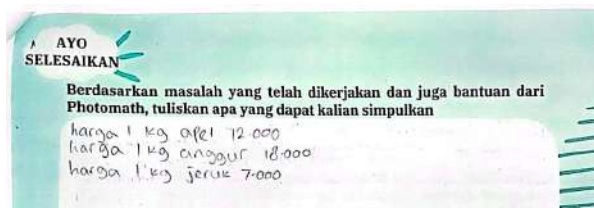 AYO
SELESAIKAN
Berdasarkan masalah yang telah dikerjakan dan juga bantuan dari
Photomath, tuliskan apa yang dapat kalian simpulkan
harga 1 kg apel 12.000
harga 1 kg anggur 18.000
harga 1 kg jeruk 7.000